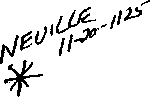 NEUILLE
11-20-1125